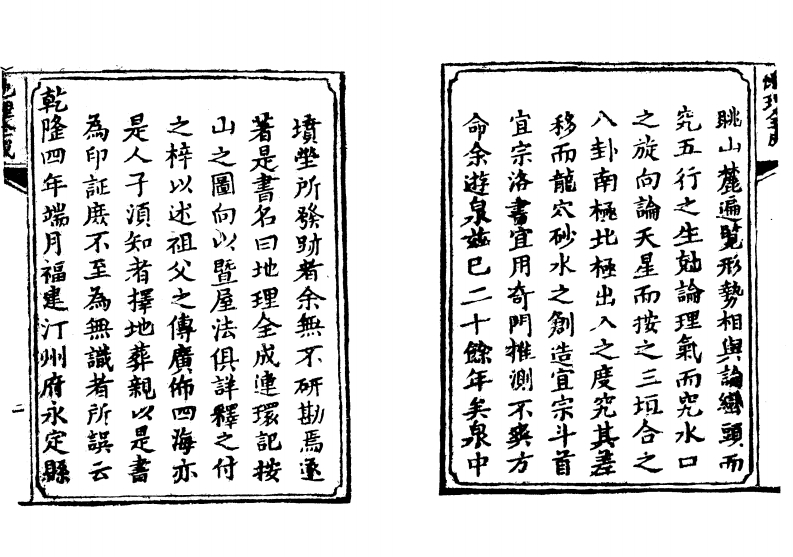 眺山麓遍覽形勢相與論巒頭而
究五行之生尅論理氣而究水口
之旋向論天星而按之三垣合之
八卦南極北極出入之度究其差
移而龍穴砂水之創造宜宗斗首
宜宗洛書宜用奇門推測不爽方
命余遊泉兹已二十餘年矣泉中
墳塋所發跡者余無不研勘焉遂
著是書名曰地理全成連環記按
山之圖向以暨屋法俱詳釋之付
之梓以述祖父之傳廣佈四海亦
是人子湏知者擇地葬親以是書
為印証庶不至為無識者所誤云
乾隆四年端月福建汀州府永定縣
地理全成
二